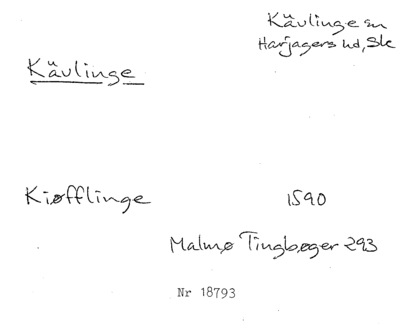 Kävlinge sn
Harjagers hd, Sk
Kävlinge
Kiøfflinge 1590
Malmø Tingbøger 293
Nr 18793